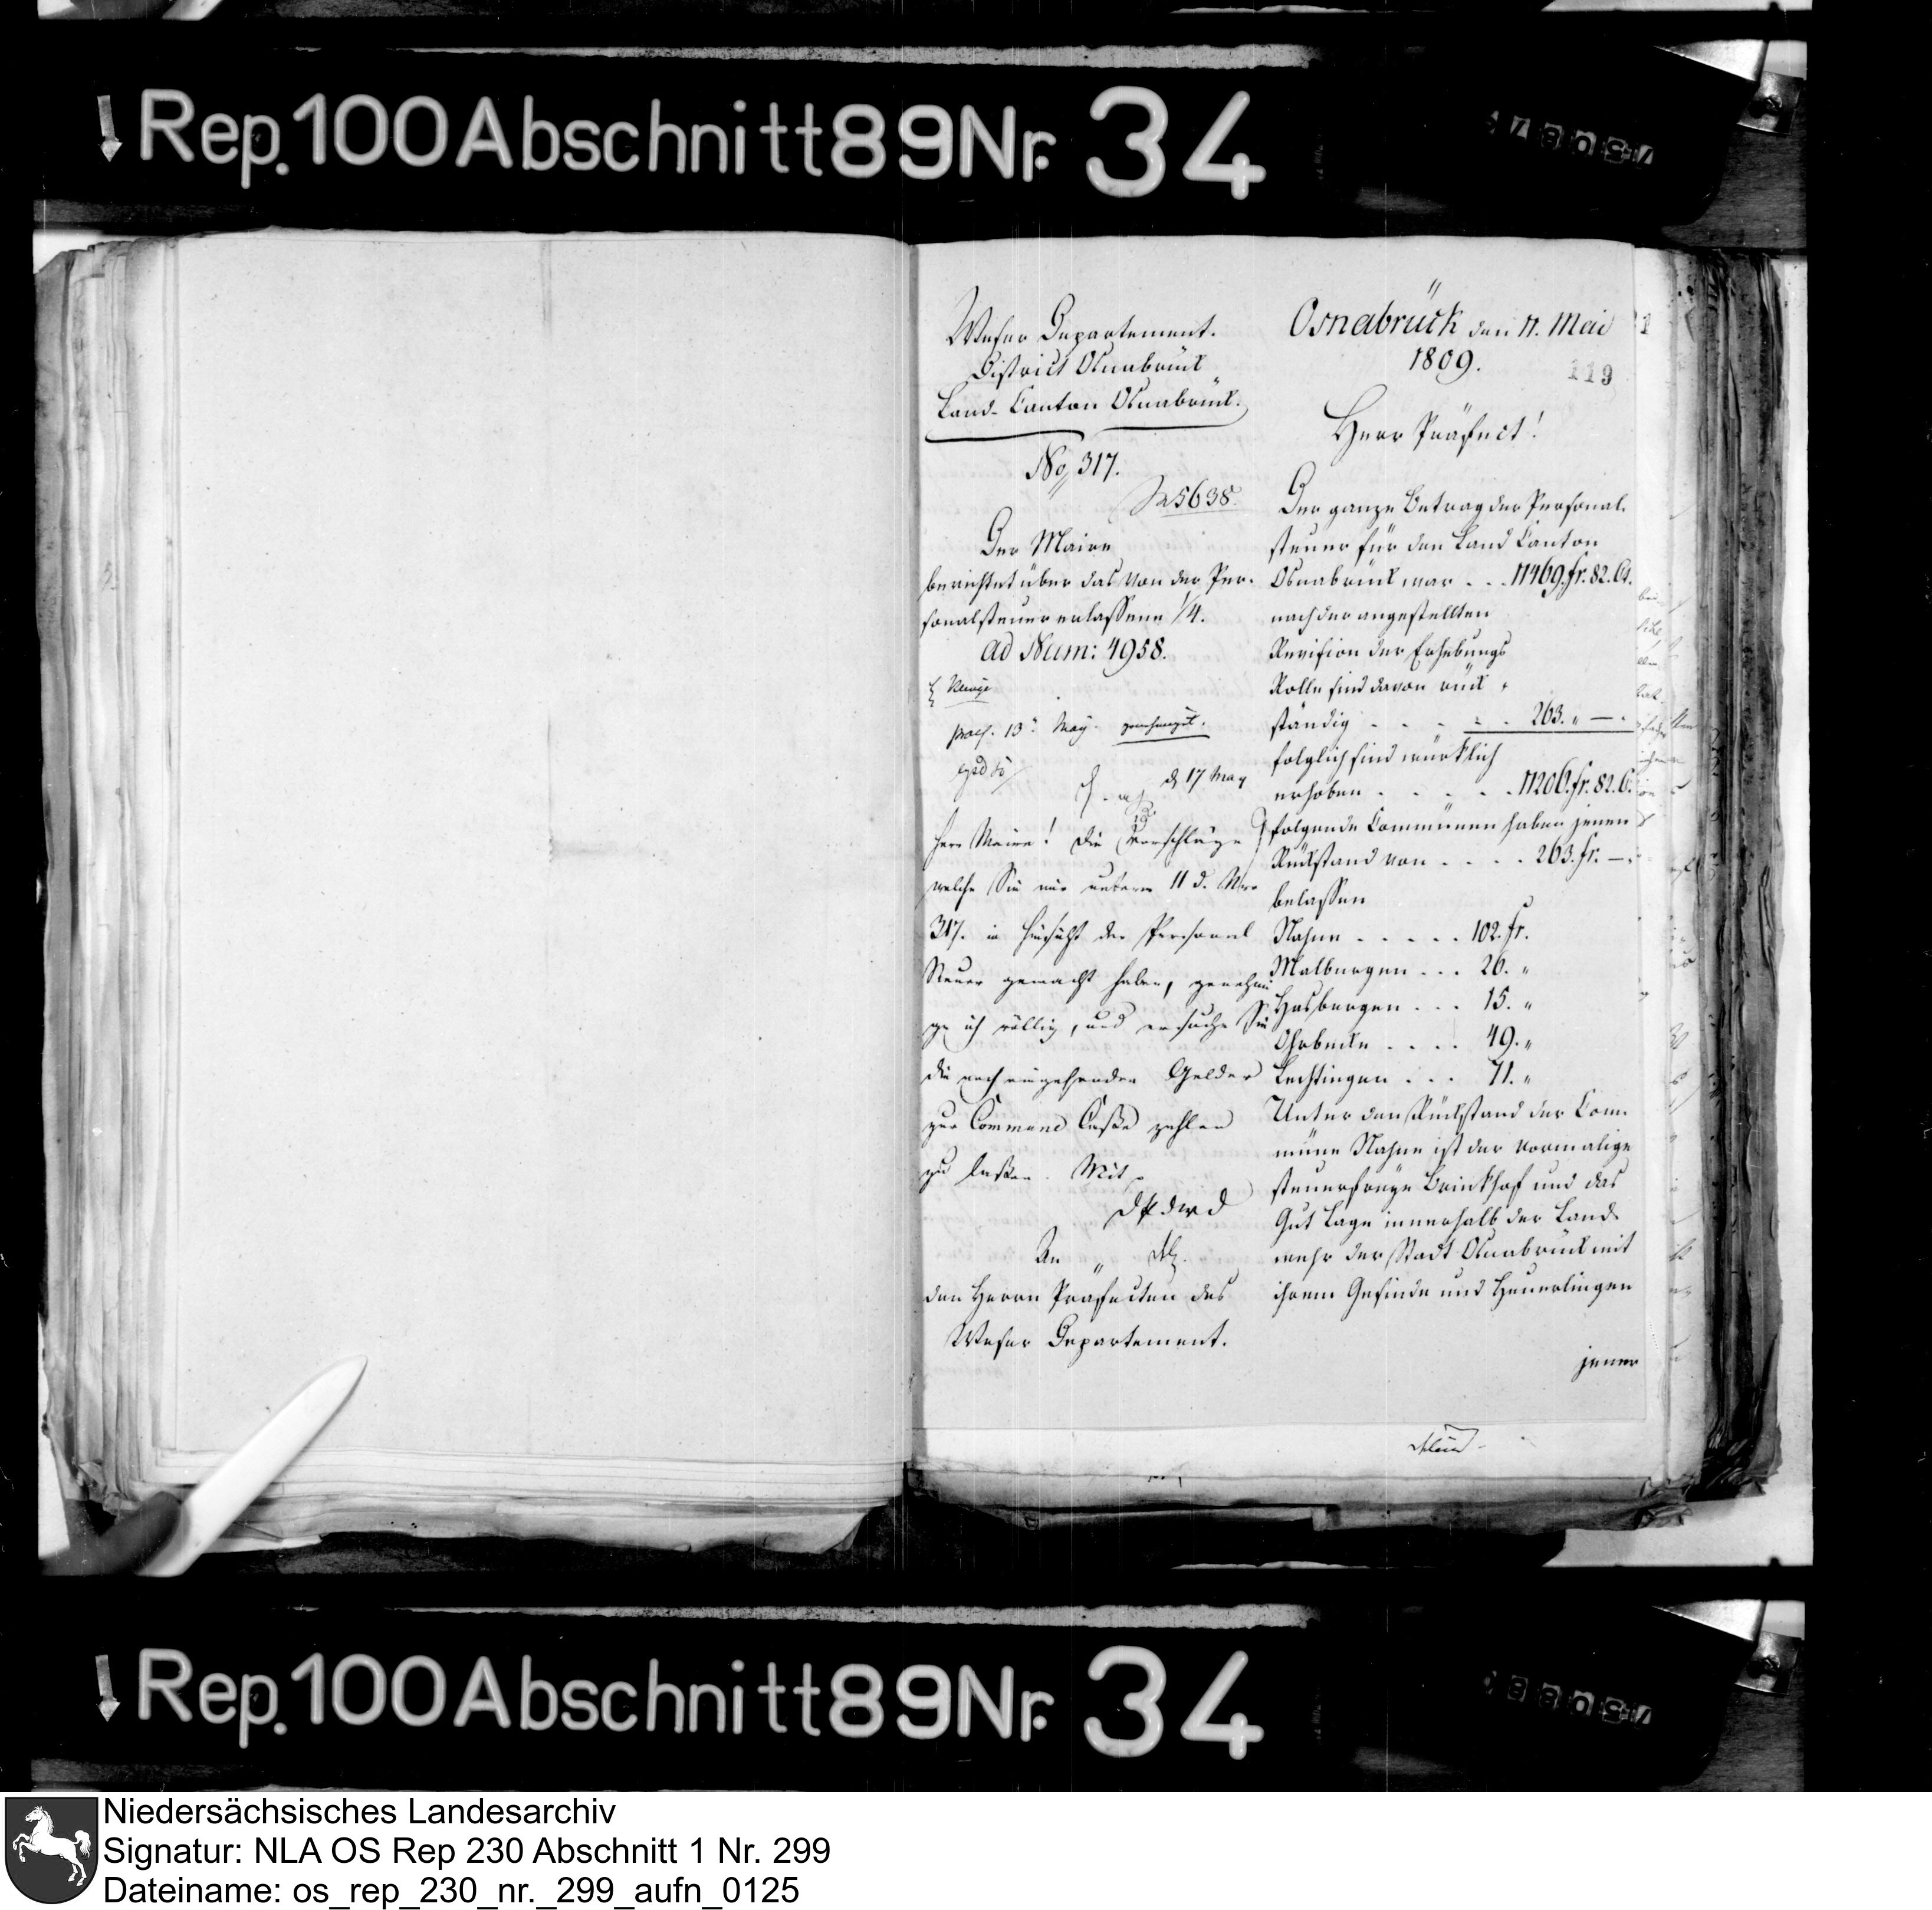 Rep. 100 Abschnitt 89 Nr. 34
Weser Departement.
District Osnabrück
Land-Canton Osnabrück.
No 317.
5638.
Der Maire
berichtet über das von der Per-
sonalsteuer erlassene 1/4.
ad Num: 4958.
13 May
17 May
Herr Maire! Die Vorschläge
welche Sie mir unterm 11 d. Nro
317. in Hinsicht der Personal
Steuer gemacht haben, genehmi
ge ich völlig, und ersuche Sie
die noch eingehenden Gelder
zur Casse zahlen
zu lassen. Mit
An
den Herrn Präfecten des
Weser Departement.
Osnabrück den 11. Mai
1809.
119
Herr Präfect!
Der ganze Betrag der Personal-
steuer für den Land Canton
Osnabrück war . . . 11469. fr. 82. Ct.
nach der angestellten
Revision der Erhebungs
Rolle sind davon rück-
ständig . . . . . 263. " — .
folglich sind würklich
erhoben . . . . . 11206. fr. 82. C.
folgende Communen haben jenen
Rückstand von . . . . 263. fr. —
belassen
Nahne . . . . . 102. fr.
Malbergen . . . 26. "
Hasbergen . . . 15. "
Ohrbecke . . . . 49. "
Lechtingen . . . 71. "
Unter den Rückstand der Com-
mune Nahne ist der vormalige
steuerfreye Brinkhof und das
Gut Lage innerhalb der Land-
wehr der Stadt Osnabrück mit
ihrem Gesinde und Heuerlingen
jener
Rep. 100 Abschnitt 89 Nr. 34
Niedersächsisches Landesarchiv
Signatur: NLA OS Rep 230 Abschnitt 1 Nr. 299
Dateiname: os_rep_230_nr._299_aufn_0125